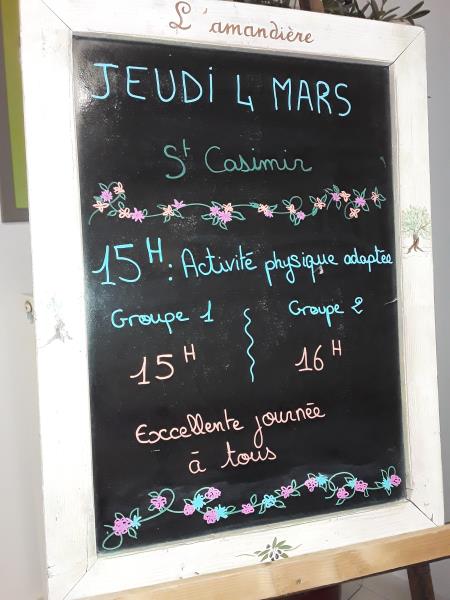 L'amandière
JEUDI 4 MARS
St Casimir
15H: Activité physique adaptée
Groupe 1
Groupe 2
15H
16H
Exccellente journée
à tous